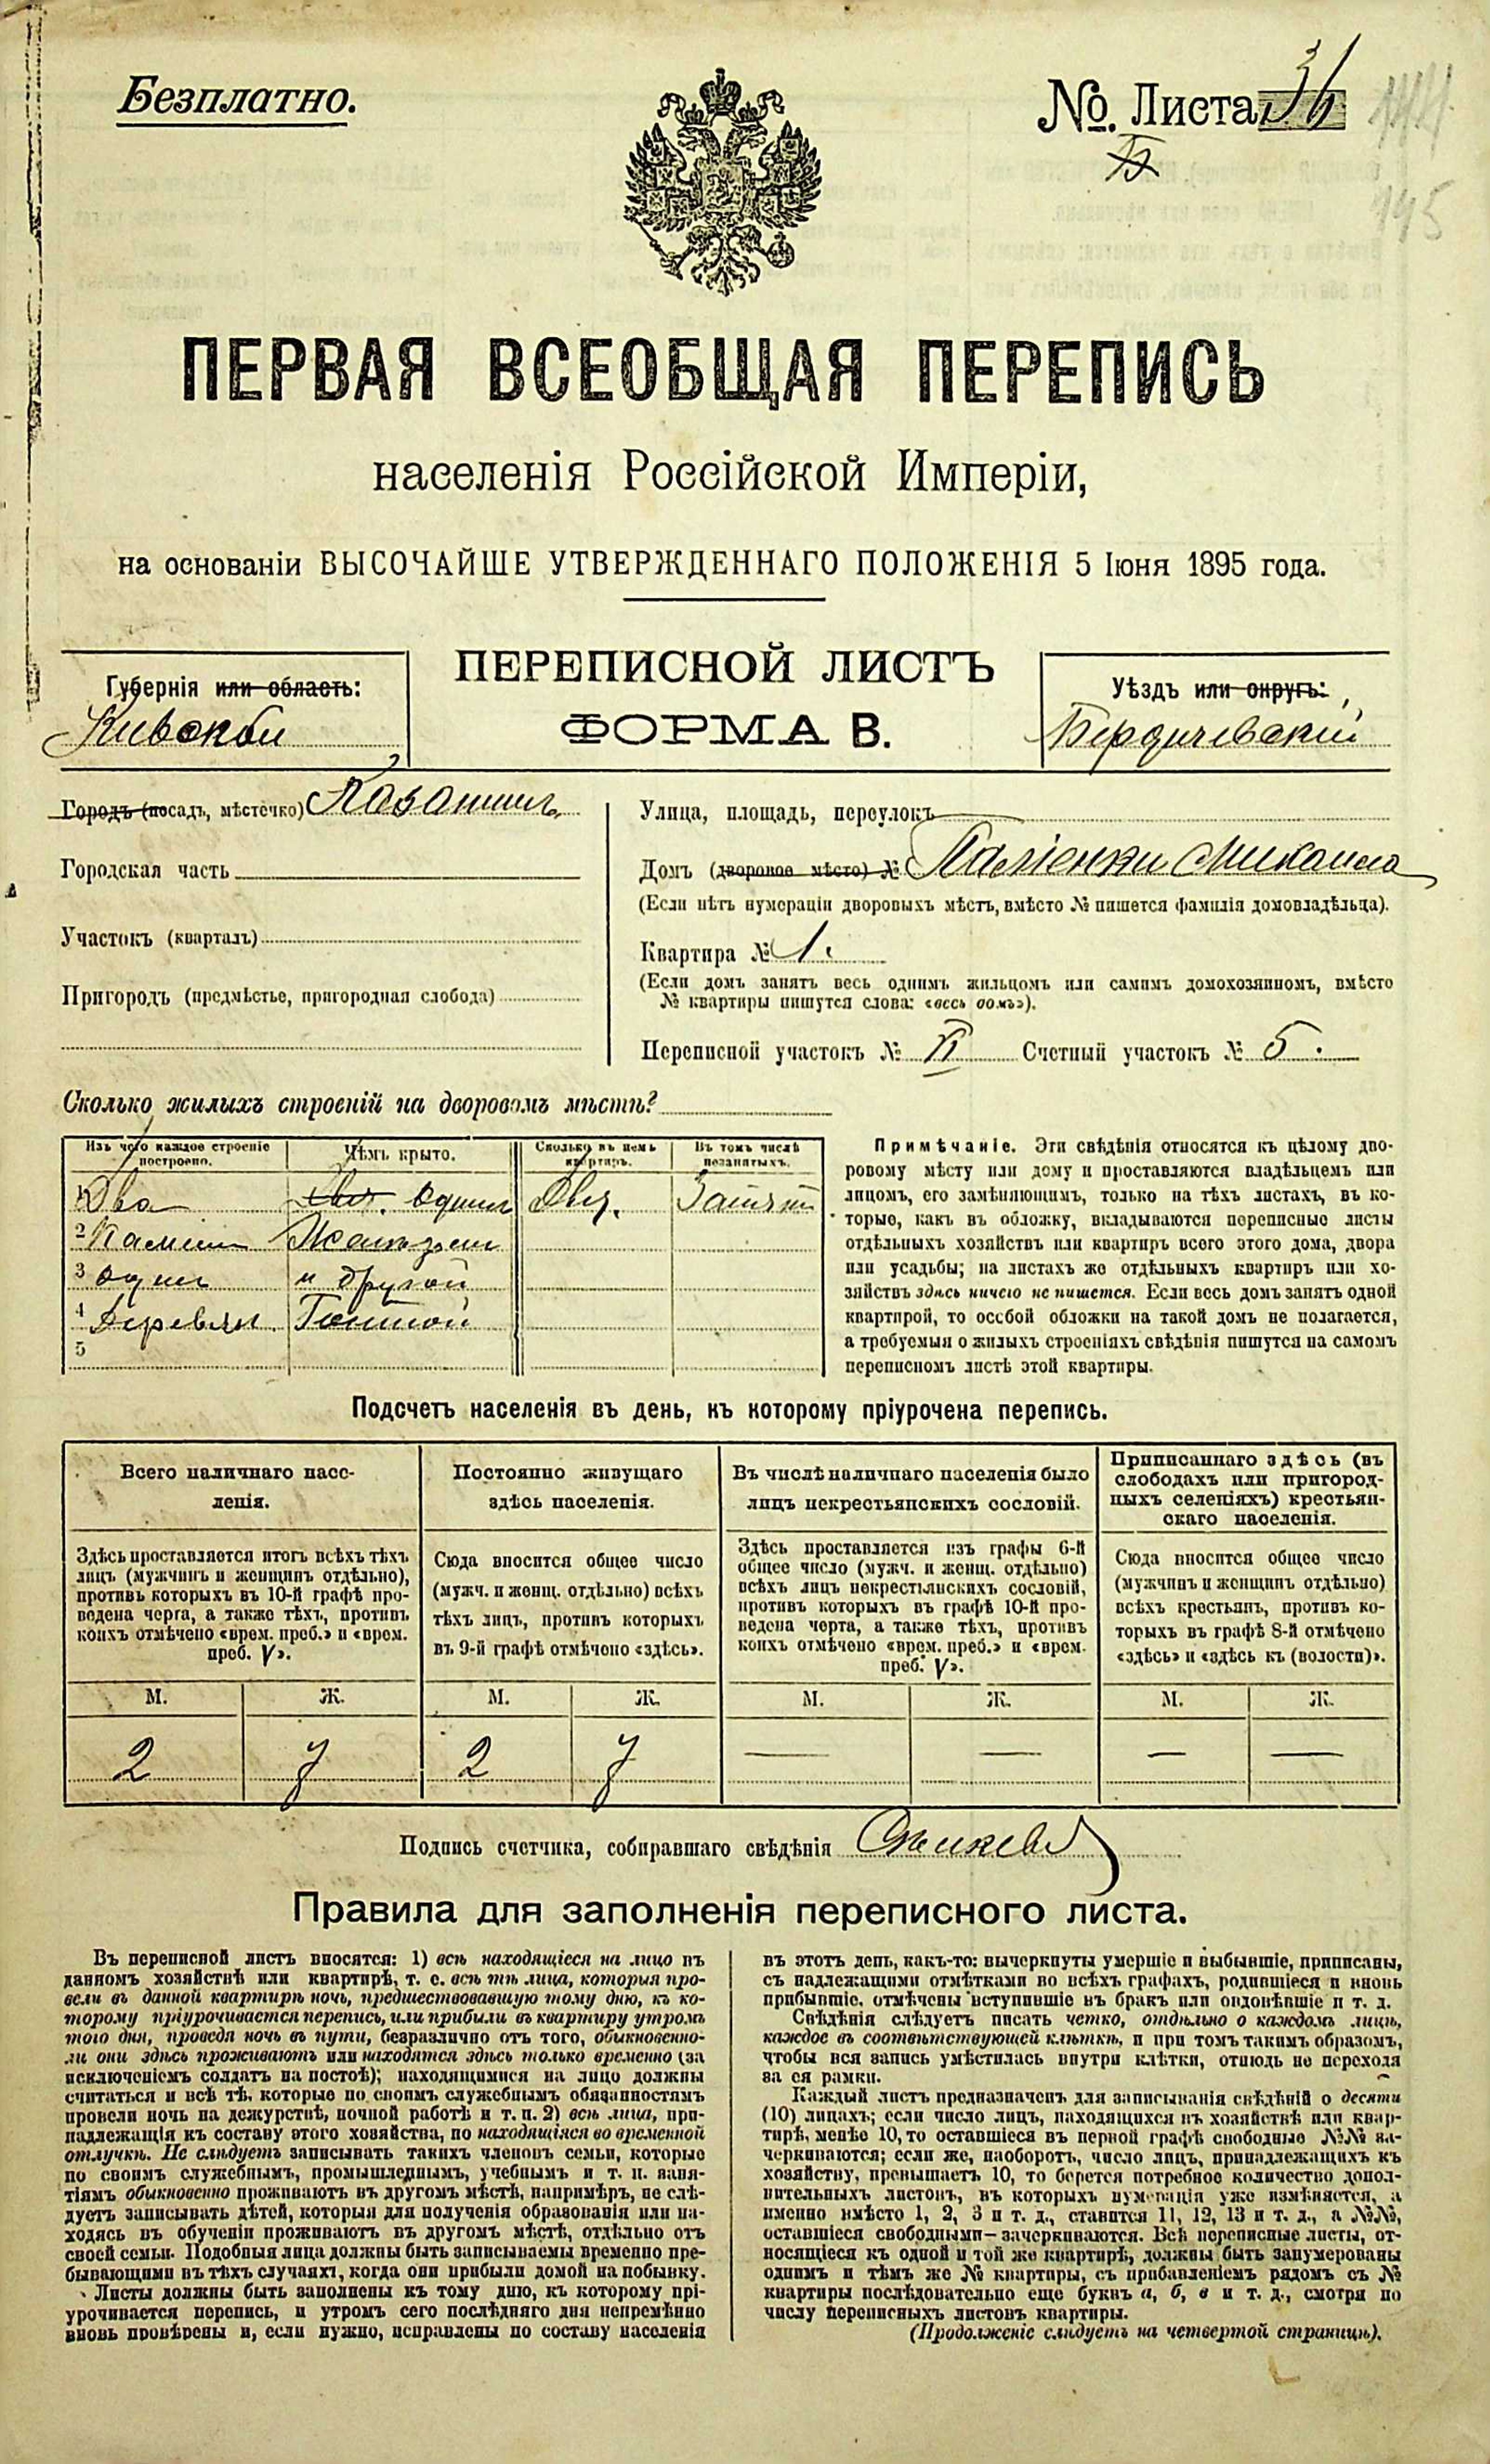 Безплатно.
№. Листа 36
ПЕРВАЯ ВСЕОБЩАЯ ПЕРЕПИСЬ
населенія Россійской Имперіи,
на основаніи ВЫСОЧАЙШЕ УТВЕРЖДЕННАГО ПОЛОЖЕНІЯ 5 Іюня 1895 года.
Губернія или область:
Кіевской
ПЕРЕПИСНОЙ ЛИСТЪ
ФОРМА В.
Уѣздъ или округъ:
Бердичевскій
Городъ (посадъ, мѣстечко)
Городская часть
Участокъ (кварталъ)
Пригородъ (предмѣстье, пригородная слобода)
Улица, площадь, переулокъ
Домъ (дворовое мѣсто) №
(Если нѣтъ нумераціи дворовыхъ мѣстъ, вмѣсто № пишется фамилія домовладѣльца).
Квартира № 1.
(Если домъ занятъ весь однимъ жильцомъ или самимъ домохозяиномъ, вмѣсто
№ квартиры пишутся слова: «весь домъ»).
Переписной участокъ № Счетный участокъ № 5.
Сколько жилыхъ строеній на дворовомъ мѣстѣ?
Изъ чего каждое строеніе построено.
Чѣмъ крыто.
Сколько въ немъ квартиръ.
Въ томъ числѣ незанятыхъ.
1 Два
2
3 один
4 Деревян.
5
и другой
Примѣчаніе. Эти свѣдѣнія относятся къ цѣлому дво-
ровому мѣсту или дому и проставляются владѣльцемъ или
лицомъ, его замѣняющимъ, только на тѣхъ листахъ, въ ко-
торые, какъ въ обложку, вкладываются переписные листы
отдѣльныхъ хозяйствъ или квартиръ всего этого дома, двора
или усадьбы; на листахъ же отдѣльныхъ квартиръ или хо-
зяйствъ здѣсь ничего не пишется. Если весь домъ занятъ одной
квартирой, то особой обложки на такой домъ не полагается,
а требуемыя о жилыхъ строеніяхъ свѣдѣнія пишутся на самомъ
переписномъ листѣ этой квартиры.
Подсчетъ населенія въ день, къ которому пріурочена перепись.
Всего наличнаго насе-
ленія.
Здѣсь проставляется итогъ всѣхъ тѣхъ
лицъ (мужчинъ и женщинъ отдѣльно),
противъ которыхъ въ 10-й графѣ про-
ведена черта, а также тѣхъ, противъ
коихъ отмѣчено «врем. преб.» и «врем.
преб. V».
Постоянно живущаго
здѣсь населенія.
Сюда вносится общее число
(мужч. и женщ. отдѣльно) всѣхъ
тѣхъ лицъ, противъ которыхъ
въ 9-й графѣ отмѣчено «здѣсь».
Въ числѣ наличнаго населенія было
лицъ некрестьянскихъ сословій.
Здѣсь проставляется изъ графы 6-й
общее число (мужч. и женщ. отдѣльно)
всѣхъ лицъ некрестьянскихъ сословій,
противъ которыхъ въ графѣ 10-й про-
ведена черта, а также тѣхъ, противъ
коихъ отмѣчено «врем. преб.» и «врем.
преб. V».
Приписаннаго здѣсь (въ
слободахъ или пригород-
ныхъ селеніяхъ) крестьян-
скаго населенія.
Сюда вносится общее число
(мужчинъ и женщинъ отдѣльно)
всѣхъ крестьянъ, противъ ко-
торыхъ въ графѣ 8-й отмѣчено
«здѣсь» и «здѣсь къ (волости)».
М. Ж. М. Ж. М. Ж. М. Ж.
2 7 2 7 — — — —
Подпись счетчика, собиравшаго свѣдѣнія
Правила для заполненія переписного листа.
Въ переписной листъ вносятся: 1) всѣ находящіеся на лицо въ
данномъ хозяйствѣ или квартирѣ, т. е. всѣ тѣ лица, которыя про-
вели въ данной квартирѣ ночь, предшествовавшую тому дню, къ ко-
торому пріурочивается перепись, или прибыли въ квартиру утромъ
того дня, проведя ночь въ пути, безразлично отъ того, обыкновенно-
ли они здѣсь проживаютъ или находятся здѣсь только временно (за
исключеніемъ солдатъ на постоѣ); находящимися на лицо должны
считаться и всѣ тѣ, которые по своимъ служебнымъ обязанностямъ
провели ночь на дежурствѣ, ночной работѣ и т. п. 2) всѣ лица, при-
надлежащія къ составу этого хозяйства, но находящіяся во временной
отлучкѣ. Не слѣдуетъ записывать такихъ членовъ семьи, которые
по своимъ служебнымъ, промышленнымъ, учебнымъ и т. п. заня-
тіямъ обыкновенно проживаютъ въ другомъ мѣстѣ, напримѣръ, не слѣ-
дуетъ записывать дѣтей, которыя для полученія образованія или на-
ходясь въ обученіи проживаютъ въ другомъ мѣстѣ, отдѣльно отъ
своей семьи. Подобныя лица должны быть записываемы временно пре-
бывающими въ тѣхъ случаяхъ, когда они прибыли домой на побывку.
Листы должны быть заполнены къ тому дню, къ которому прі-
урочивается перепись, и утромъ сего послѣдняго дня непремѣнно
вновь провѣрены и, если нужно, исправлены по составу населенія
въ этотъ день, какъ-то: вычеркнуты умершіе и выбывшіе, приписаны,
съ надлежащими отмѣтками во всѣхъ графахъ, родившіеся и вновь
прибывшіе, отмѣчены вступившіе въ бракъ или овдовѣвшіе и т. д.
Свѣдѣнія слѣдуетъ писать четко, отдѣльно о каждомъ лицѣ,
каждое въ соотвѣтствующей клѣткѣ, и при томъ такимъ образомъ,
чтобы вся запись умѣстилась внутри клѣтки, отнюдь не переходя
за ея рамки.
Каждый листъ предназначенъ для записыванія свѣдѣній о десяти
(10) лицахъ; если число лицъ, находящихся въ хозяйствѣ или квар-
тирѣ, менѣе 10, то оставшіеся въ первой графѣ свободные №№ за-
черкиваются; если же, наоборотъ, число лицъ, принадлежащихъ къ
хозяйству, превышаетъ 10, то берется потребное количество допол-
нительныхъ листовъ, въ которыхъ нумерація уже измѣняется, а
именно вмѣсто 1, 2, 3 и т. д., ставится 11, 12, 13 и т. д., а №№,
оставшіеся свободными — зачеркиваются. Всѣ переписные листы, от-
носящіеся къ одной и той же квартирѣ, должны быть занумерованы
однимъ и тѣмъ же № квартиры, съ прибавленіемъ рядомъ съ №
квартиры послѣдовательно еще буквъ а, б, в и т. д., смотря по
числу переписныхъ листовъ квартиры.
(Продолженіе слѣдуетъ на четвертой страницѣ).